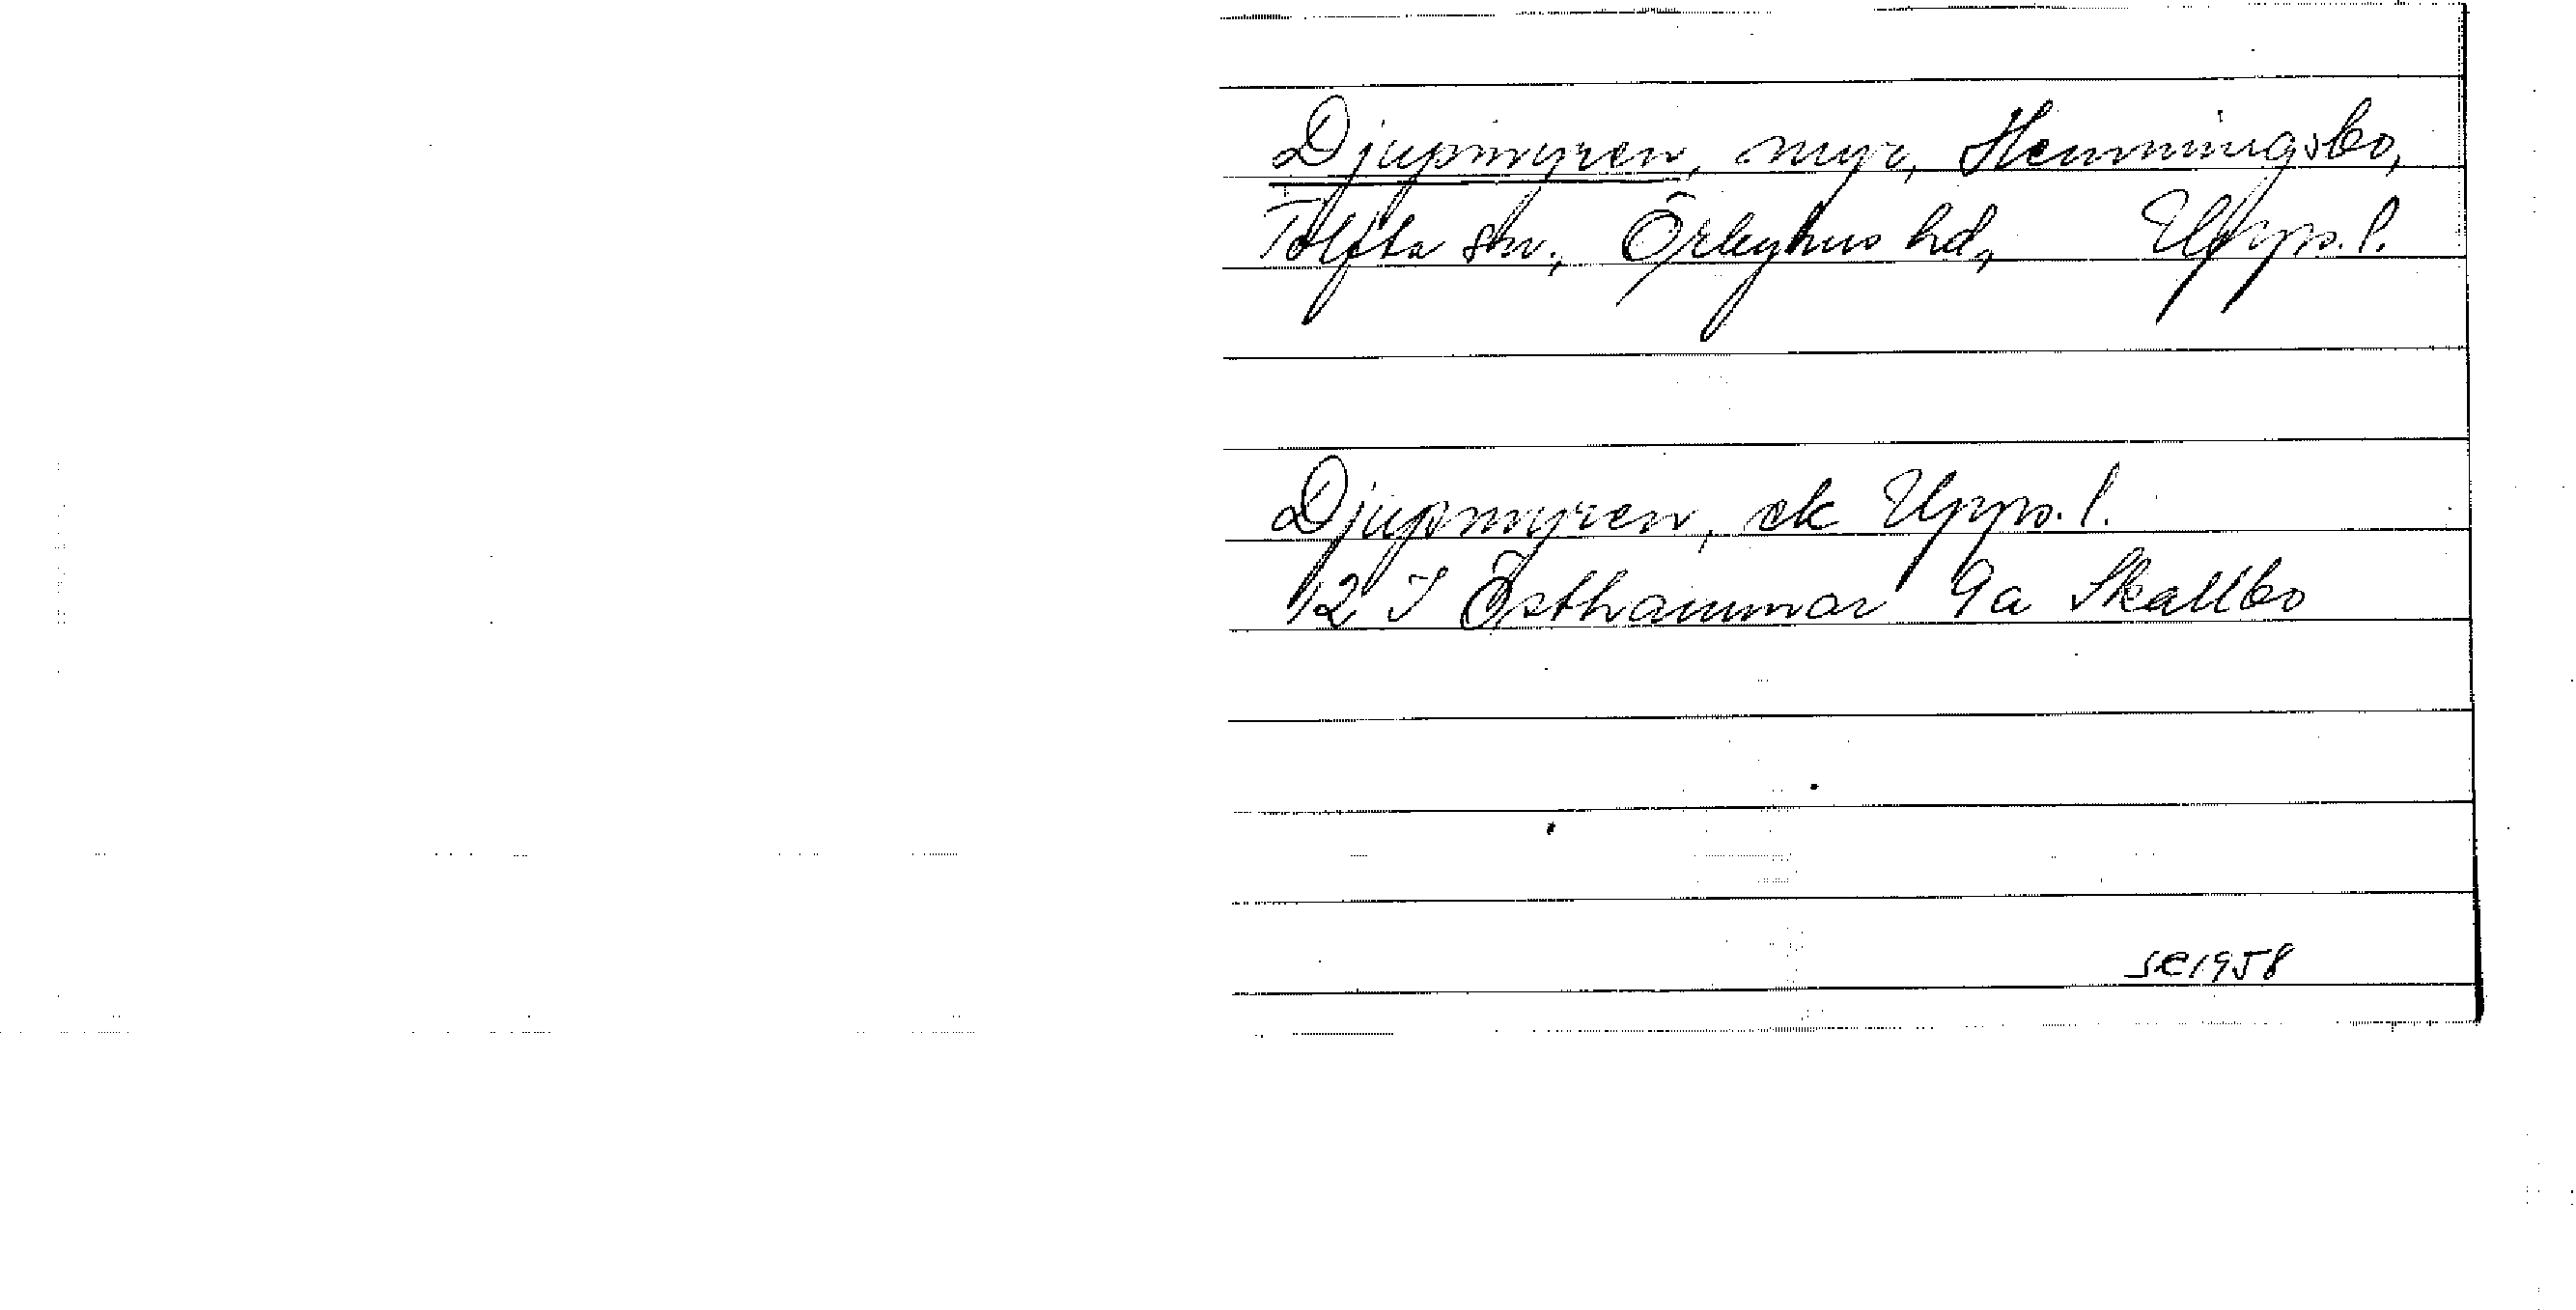 Djupmyren, myr, Hemmingsbo,
Tolfta sn., Örbyhus hd, Upps. l.
Djupmyren, ek Upps. l.
12 I Östhammar 9a Skallbo
SE 1958